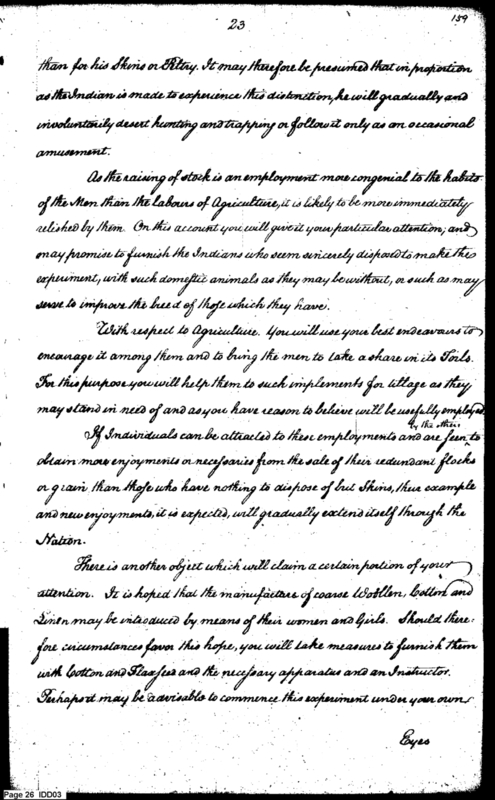 23
159
than for his Skins or Peltry. It may therefore be presumed that in proportion
as the Indian is made to experience this distinction, he will gradually and
involuntarily desert hunting and trapping or follow it only as an occasional
amusement.
As the raising of stock is an employment more congenial to the habits
of the Men than the labours of Agriculture, it is likely to be more immediately
relished by them. On this account you will give it your particular attention; and
may promise to furnish the Indians who seem sincerely disposed to make this
experiment, with such domestic animals as they may be without, or such as may
serve to improve the breed of those which they have.
With respect to Agriculture. You will use your best endeavours to
encourage it among them and to bring the men to take a share in its Toils.
For this purpose you will help them to such implements for tillage as they
may stand in need of and as you have reason to believe will be usefully employed.
by the others
If Individuals can be attracted to these employments and are seen to
obtain more enjoyments or necessaries from the sale of their redundant flocks
or grain than those who have nothing to dispose of but Skins, their example
and new enjoyments, it is expected, will gradually extend itself through the
Nation.
There is another object which will claim a certain portion of your
attention. It is hoped that the manufacture of coarse Woollen, Cotton and
Linen may be introduced by means of their women and Girls. Should there:
fore circumstances favor this hope, you will take measures to furnish them
with Cotton and Flax seed and the necessary apparatus and an Instructor.
Perhaps it may be advisable to commence this experiment under your own
Eyes
Page 26 IDD03